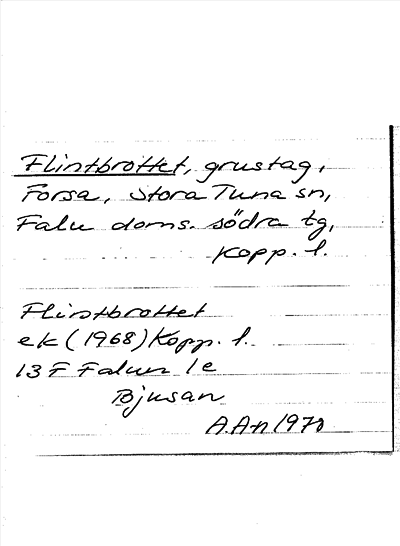 Flintbrottet, grustag,
Forsa, Stora Tuna sn,
Falu doms. södra tg,
Kopp. l.
Flintbrottet
ek (1968) Kopp. l.
13 F Falun 1e
Bjusan
A.An 1970